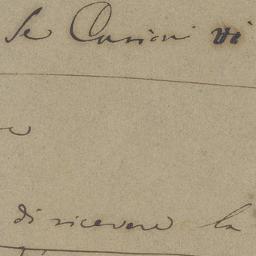 Se Cariori vi
di ricevere la